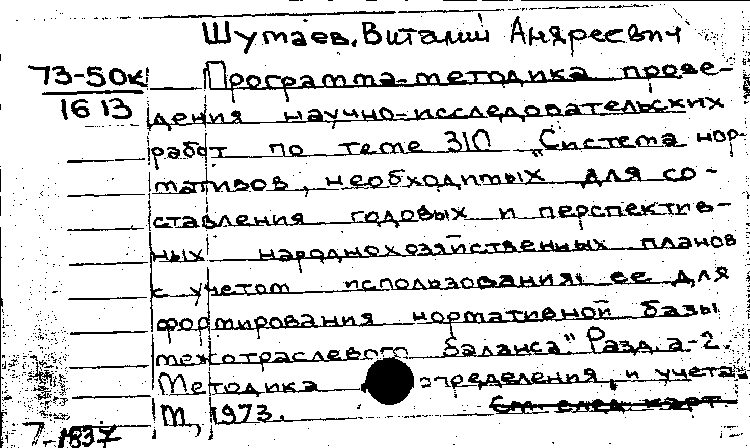 Шутаев, Виталий Андреевич
73-50к
1613
Программа-методика прове-
дения научно-исследовательских
работ по теме 310 „Система нор-
мативов, необходимых для со-
ставления годовых и перспектив-
ных народнохозяйственных планов
с учетом использования ее для
формирования нормативной базы
межотраслевого баланса". Разд. а-2.
Методика определения и учета.
М, 1973.
См. след. карт.
7-1837